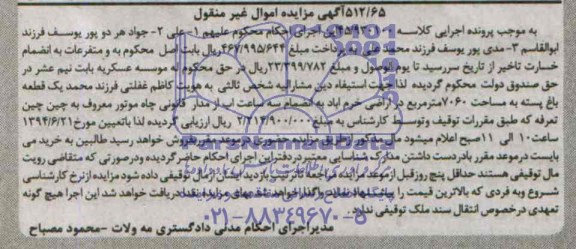 ۵۱۲/۶۵آگهی مزایده اموال غیر منقول
به موجب پرونده اجرایی کلاسه اجرای احکام محکوم علیهم ۱- علی ۲- جواد هر دو پور یوسف فرزند
ابوالقاسم ۳- مدی پور یوسف فرزند محمد علی پرداخت مبلغ ۴۶۷/۹۹۵/۶۴۴ریال بابت اصل محکوم به و متفرعات به انضمام
خسارت تاخیر از تاریخ سررسید تا یوم الوصول و مبلغ ۲۳/۳۹۹/۷۸۲ریال در حق محکوم له موسسه عسکریه بابت نیم عشر در
حق صندوق دولت محکوم گردیده لذا جهت استیفاء دین مشارالیه شخص ثالثی به هویت کاظم غفلتی فرزند محمد یک قطعه
باغ پسته به مساحت ۷۰۶۰مترمربع در اراضی خرم اباد به انضمام سه ساعت اب از مدار قانونی چاه موتور معروف به چین چین
تعرفه که طبق مقررات توقیف وتوسط کارشناس به مبلغ ۲/۲۱۴/۹۰۰/۰۰۰ ریال ارزیابی گردیده لذا باتعیین مورخ۱۳۹۴/۶/۲۱
ساعت۱۰ الی ۱۱صبح اعلام میشود مال مذکور ازطریق مزایده حضوری درموعد مقرربفروش خواهد رسید طالبین به خرید می
بایست درموعد مقرر بادردست داشتن مدارک شناسایی معتبردردفتراین اجرای احکام حاضرگردیده ودرصورتی که متقاضی رویت
مال توقیفی هستند حداقل پنج روزقبل ازموعد مزایده مراجعه تاترتیب بازدید ازاین مال توقیفی داده شود مزایده ازنرخ کارشناسی
شروع وبه فردی که بالاترین قیمت را پیشنهاد نماید واگذارخواهد شد بهای مزایده نقدا دریافت خواهد شد این اجرا هیچ گونه
تعهدی درخصوص انتقال سند ملک توقیفی ندارد.
۰۲۱-۸۸۳۴۹۶۷۰-۵
مدیراجرای احکام مدنی دادگستری مه ولات -محمود مصباح